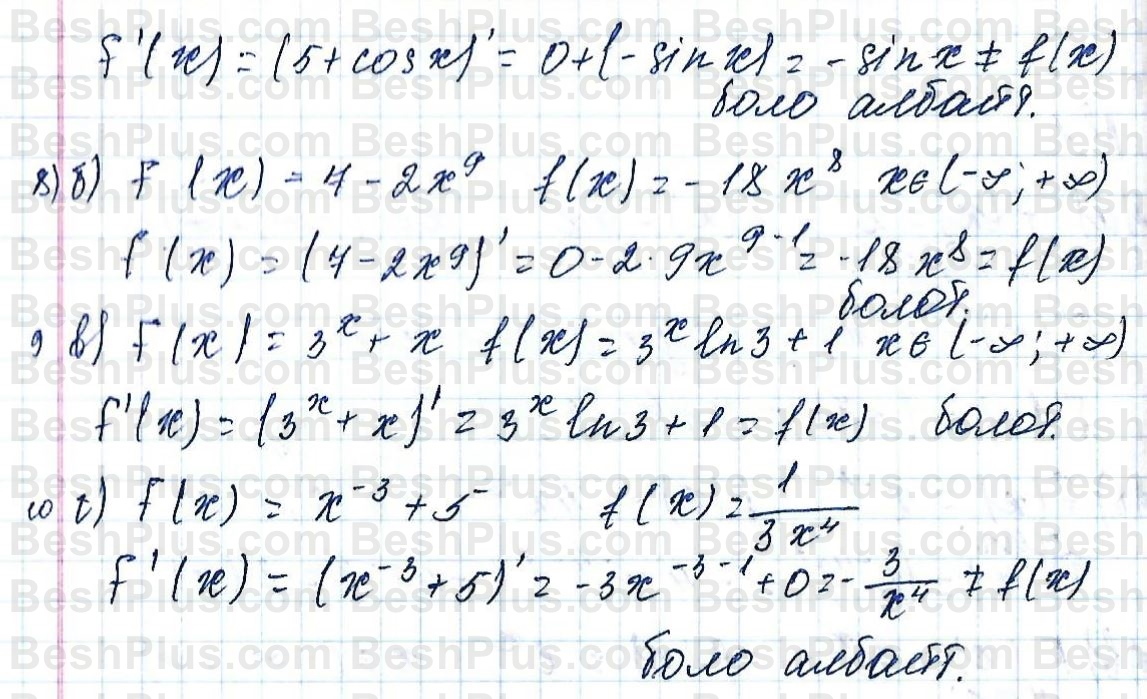 F'(x) = (5 + cos x)' = 0 + (- sin x) = - sin x ≠ f(x)
боло албайт.
8) б) F (x) = 4 - 2x⁹ f(x) = - 18 x⁸ x ∈ (-∞; +∞)
F'(x) = (4 - 2x⁹)' = 0 - 2 · 9x⁹⁻¹ = -18 x⁸ = f(x)
болот.
9 в) F(x) = 3ˣ + x f(x) = 3ˣ ln 3 + 1 x ∈ (-∞; +∞)
F'(x) = (3ˣ + x)' = 3ˣ ln 3 + 1 = f(x) болот.
10 г) F(x) = x⁻³ + 5 f(x) = 1/(3x⁴)
F'(x) = (x⁻³ + 5)' = -3x⁻³⁻¹ + 0 = - 3/x⁴ ≠ f(x)
боло албайт.